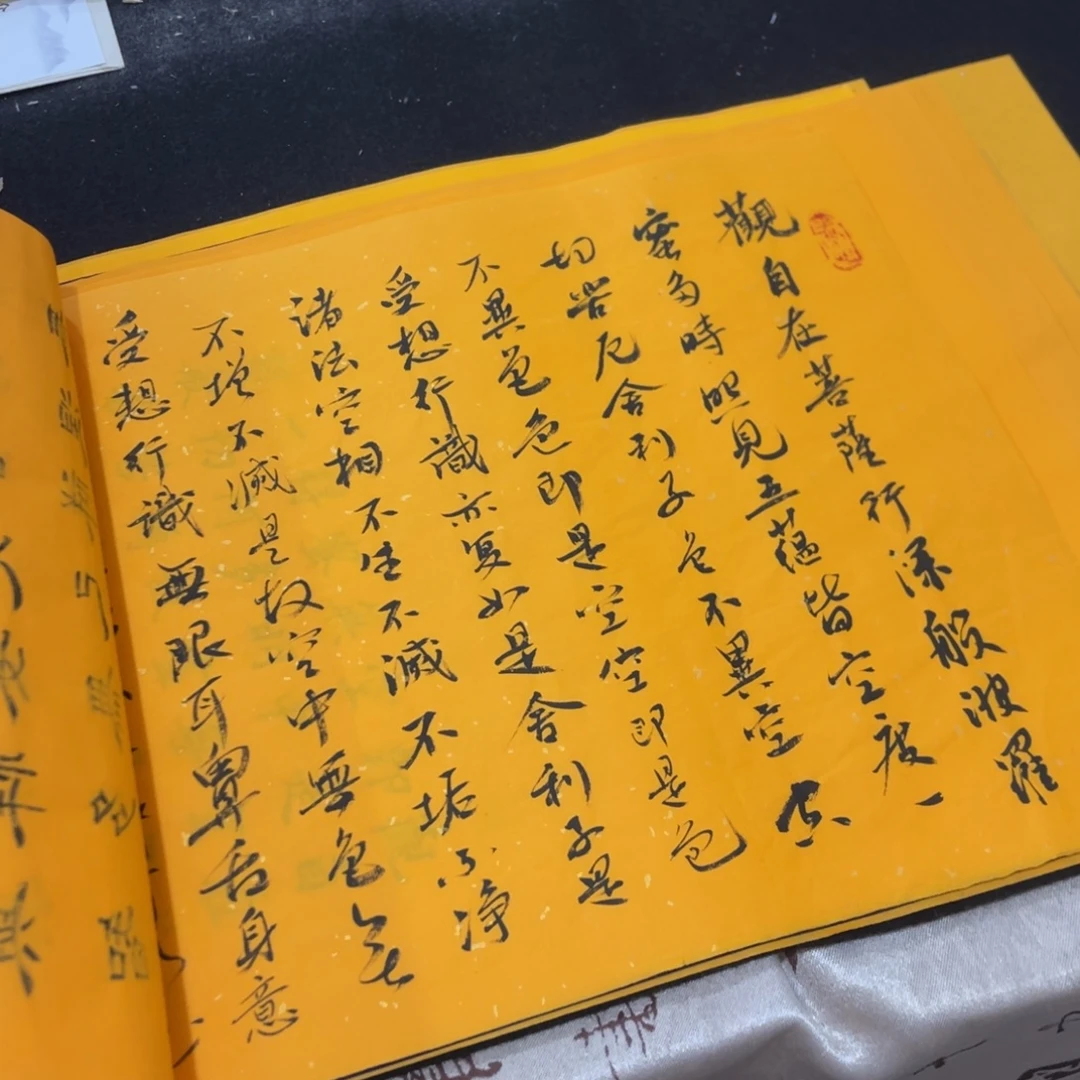 觀自在菩薩行深般波羅
蜜多時照見五蘊皆空度一
切苦厄舍利子色不異空空
不異色色即是空空即是色
受想行識亦复如是舍利子是
諸法空相不生不滅不垢不净
不增不減是故空中無色無
受想行識無眼耳鼻舌身意